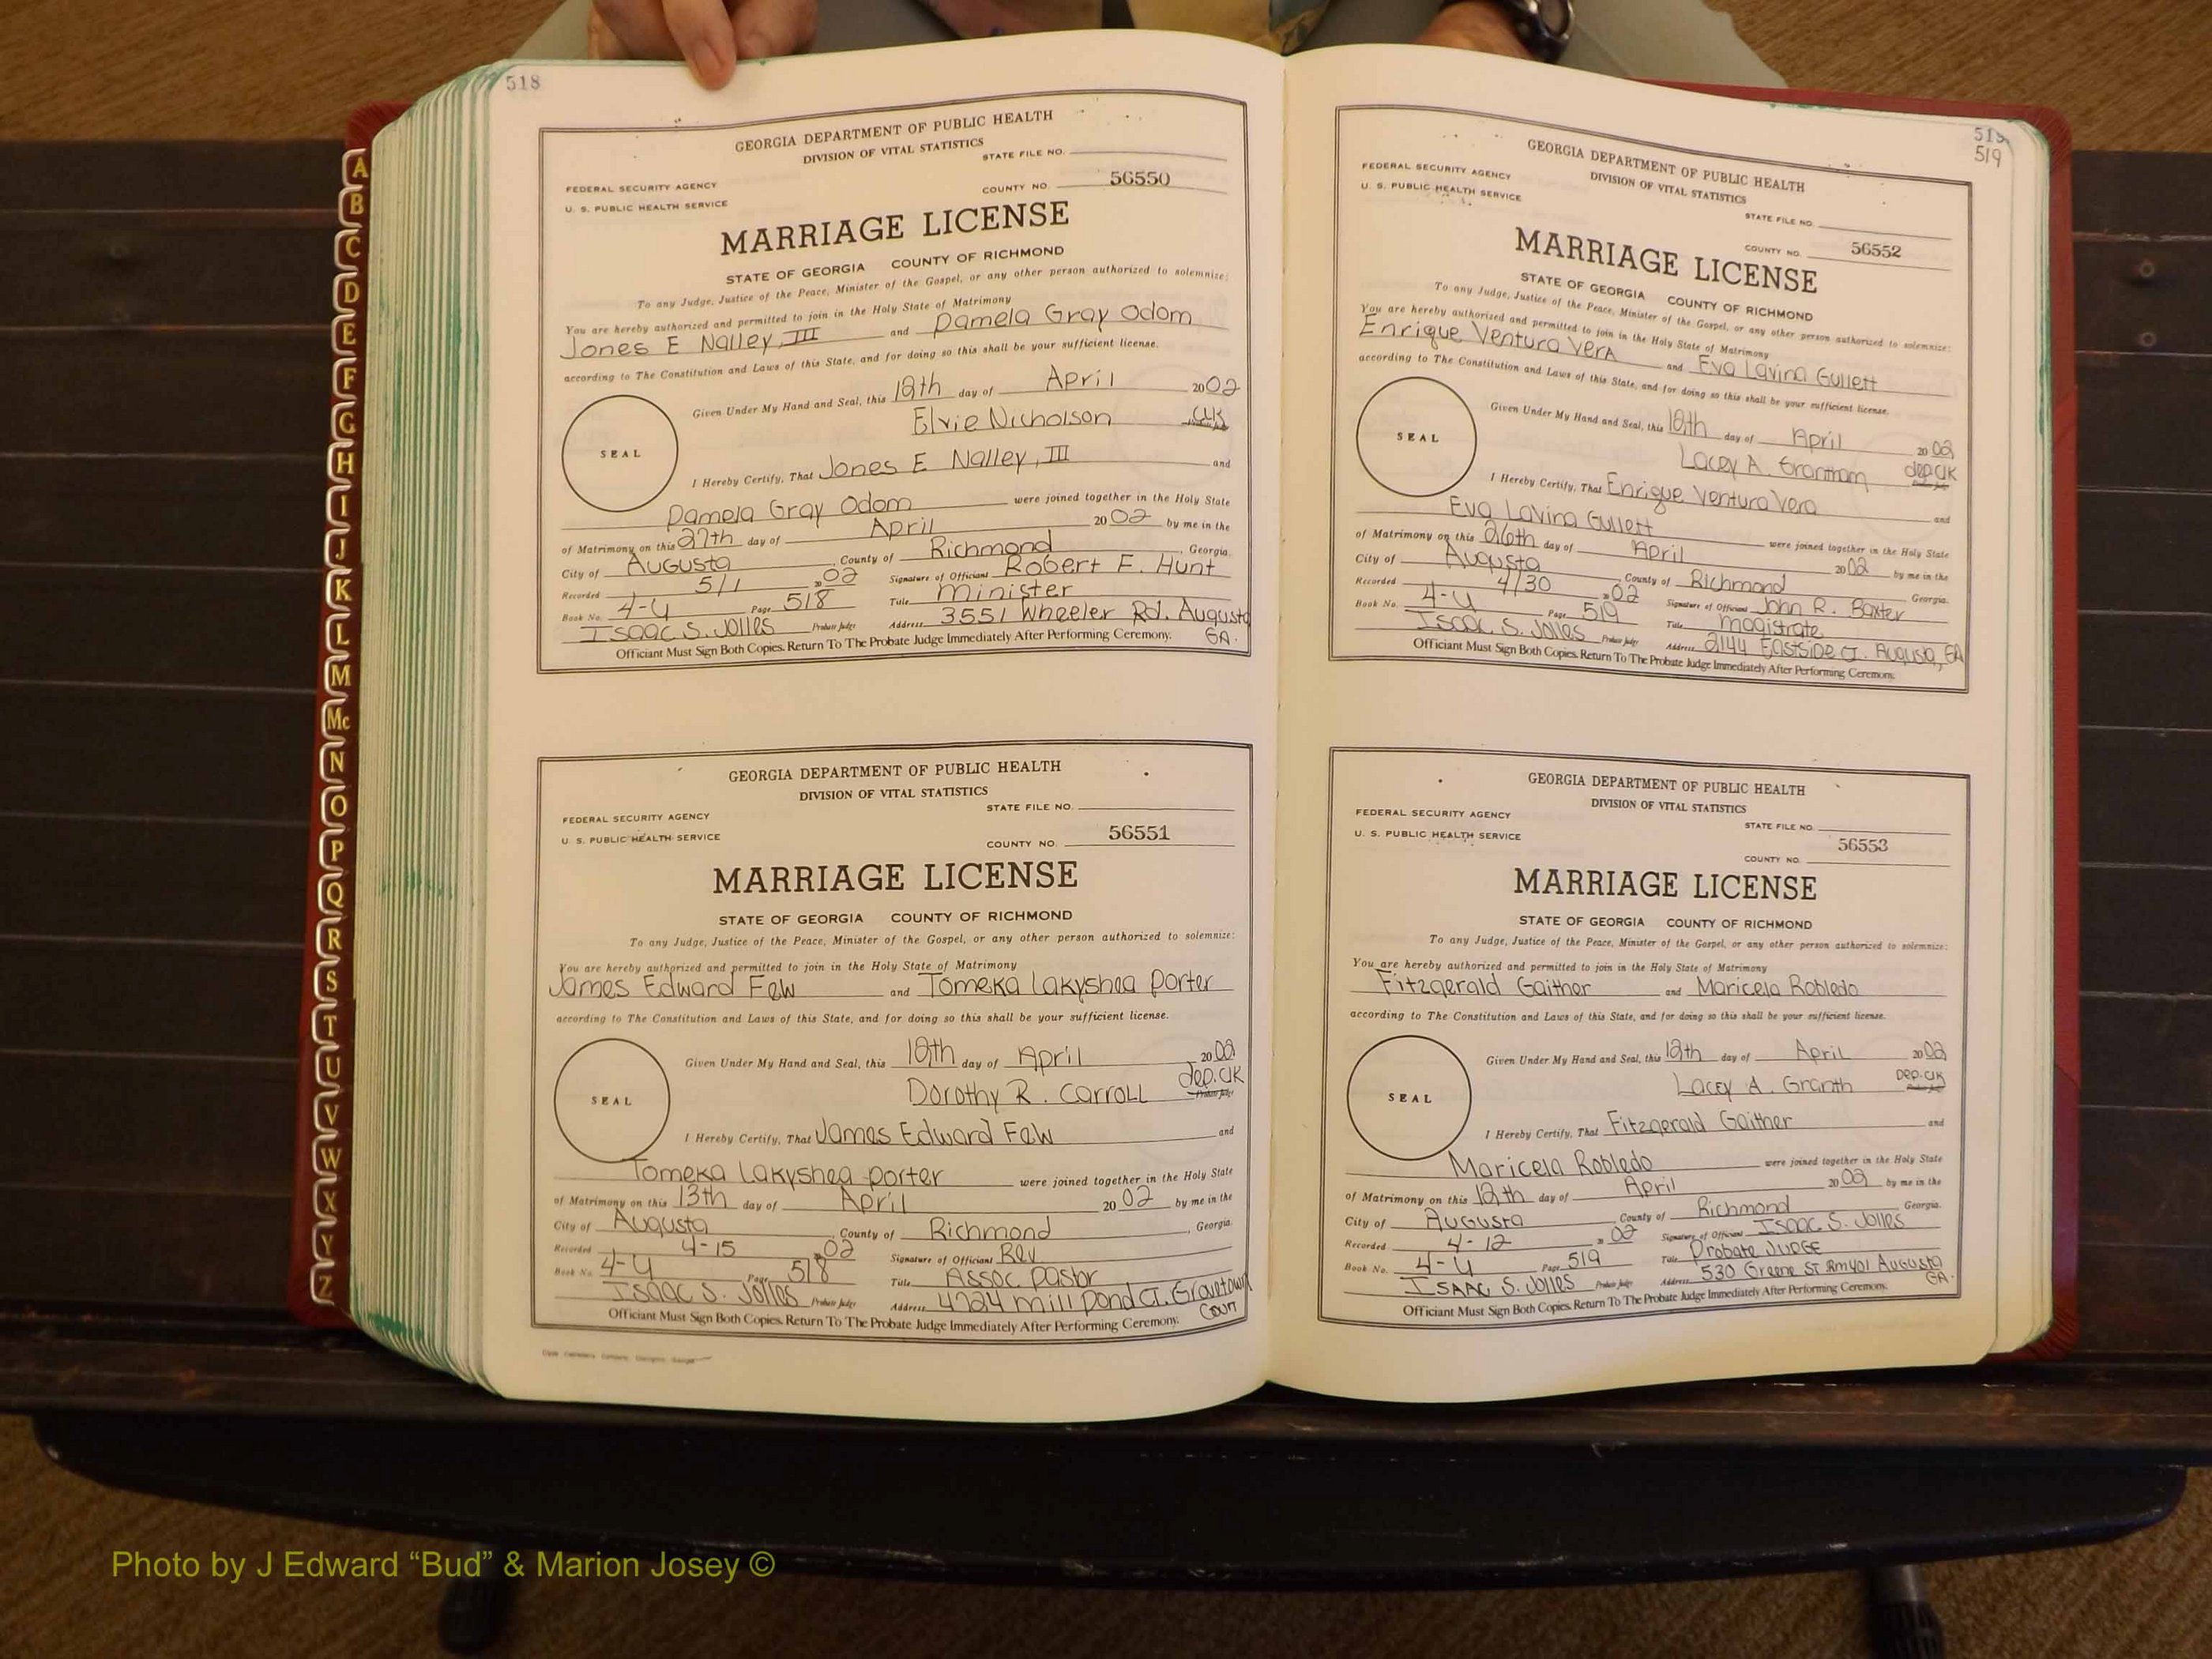 518
GEORGIA DEPARTMENT OF PUBLIC HEALTH
DIVISION OF VITAL STATISTICS
STATE FILE NO.
FEDERAL SECURITY AGENCY
COUNTY NO. 56550
U. S. PUBLIC HEALTH SERVICE
MARRIAGE LICENSE
STATE OF GEORGIA COUNTY OF RICHMOND
To any Judge, Justice of the Peace, Minister of the Gospel, or any other person authorized to solemnize:
You are hereby authorized and permitted to join in the Holy State of Matrimony
Jones E Nalley, III and Pamela Gray Odom
according to The Constitution and Laws of this State, and for doing so this shall be your sufficient license.
Given Under My Hand and Seal, this 12th day of April 2002
Elvie Nicholson CLK
SEAL
I Hereby Certify, That Jones E Nalley, III and
Pamela Gray Odom were joined together in the Holy State
of Matrimony on this 27th day of April 2002 by me in the
City of Augusta, County of Richmond, Georgia.
Recorded 5/1 2002 Signature of Officiant Robert E. Hunt
Book No. 4-U Page 518 Title minister
Isaac S. Jolles Probate Judge Address 3551 Wheeler Rd. Augusta
GA.
Officiant Must Sign Both Copies. Return To The Probate Judge Immediately After Performing Ceremony.
GEORGIA DEPARTMENT OF PUBLIC HEALTH
DIVISION OF VITAL STATISTICS
STATE FILE NO.
FEDERAL SECURITY AGENCY
U. S. PUBLIC HEALTH SERVICE
COUNTY NO. 56551
MARRIAGE LICENSE
STATE OF GEORGIA COUNTY OF RICHMOND
To any Judge, Justice of the Peace, Minister of the Gospel, or any other person authorized to solemnize:
You are hereby authorized and permitted to join in the Holy State of Matrimony
James Edward Few and Tomeka Lakyshea Porter
according to The Constitution and Laws of this State, and for doing so this shall be your sufficient license.
Given Under My Hand and Seal, this 12th day of April 2002
Dorothy R. Carroll dep. clk
Probate Judge
SEAL
I Hereby Certify, That James Edward Few and
Tomeka Lakyshea Porter were joined together in the Holy State
of Matrimony on this 13th day of April 2002 by me in the
City of Augusta, County of Richmond, Georgia.
Recorded 4-15 2002 Signature of Officiant Rev
Book No. 4-U Page 518 Title Assoc Pastor
Isaac S. Jolles Probate Judge Address 4724 Mill Pond Ct. Grovetown
Officiant Must Sign Both Copies. Return To The Probate Judge Immediately After Performing Ceremony.
519
GEORGIA DEPARTMENT OF PUBLIC HEALTH
DIVISION OF VITAL STATISTICS
FEDERAL SECURITY AGENCY
U. S. PUBLIC HEALTH SERVICE
STATE FILE NO.
COUNTY NO. 56552
MARRIAGE LICENSE
STATE OF GEORGIA COUNTY OF RICHMOND
To any Judge, Justice of the Peace, Minister of the Gospel, or any other person authorized to solemnize:
You are hereby authorized and permitted to join in the Holy State of Matrimony
Enrique Ventura Vera and Eva Lavina Gullett
according to The Constitution and Laws of this State, and for doing so this shall be your sufficient license.
Given Under My Hand and Seal, this 12th day of April 2002
Lacey A. Grantham dep. clk
SEAL
I Hereby Certify, That Enrique Ventura Vera and
Eva Lavina Gullett were joined together in the Holy State
of Matrimony on this 26th day of April 2002 by me in the
City of Augusta, County of Richmond Georgia.
Recorded 4/30 2002 Signature of Officiant John R. Baxter
Book No. 4-U Page 519 Title magistrate
Isaac S. Jolles Probate Judge Address 2144 Eastside Ct. Augusta, GA
Officiant Must Sign Both Copies. Return To The Probate Judge Immediately After Performing Ceremony.
GEORGIA DEPARTMENT OF PUBLIC HEALTH
DIVISION OF VITAL STATISTICS
FEDERAL SECURITY AGENCY
STATE FILE NO.
U. S. PUBLIC HEALTH SERVICE
56553
COUNTY NO.
MARRIAGE LICENSE
STATE OF GEORGIA COUNTY OF RICHMOND
To any Judge, Justice of the Peace, Minister of the Gospel, or any other person authorized to solemnize:
You are hereby authorized and permitted to join in the Holy State of Matrimony
Fitzgerald Gaither and Maricela Robledo
according to The Constitution and Laws of this State, and for doing so this shall be your sufficient license.
Given Under My Hand and Seal, this 12th day of April 2002
Lacey A. Granth Dep. clk
SEAL
I Hereby Certify, That Fitzgerald Gaither and
Maricela Robledo were joined together in the Holy State
of Matrimony on this 12th day of April 2002 by me in the
City of Augusta, County of Richmond Georgia.
Recorded 4-12 2002 Signature of Officiant Isaac S. Jolles
Book No. 4-U Page 519 Title Probate Judge
Isaac S. Jolles Probate Judge Address 530 Greene St Rm 401 Augusta
GA.
Officiant Must Sign Both Copies. Return To The Probate Judge Immediately After Performing Ceremony.
A
B
C
D
E
F
G
H
I
J
K
L
M
Mc
N
O
P
Q
R
S
T
U
V
W
X
Y
Z
Photo by J Edward “Bud” & Marion Josey ©